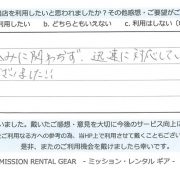 店を利用したいと思われましたか？その他感想・ご要望がご
利用したい b. どちらともいえない c. 利用はしない(
みに関わらず、迅速に対応してい
ざいました!!
いました。戴いたご感想・意見を大切に今後のサービス向上に
ご利用なさる方への参考の為、当HP上で利用させて戴くこともござい
是非、またのご利用機会を戴けましたら幸いです。
MISSION RENTAL GEAR - ミッション・レンタル ギア -